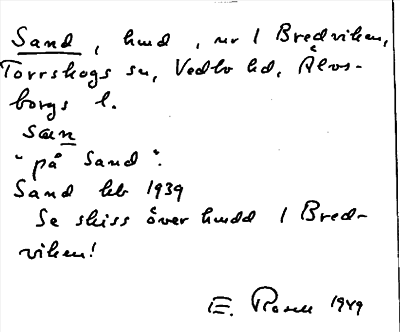 Sand, hmd, nr 1 Bredviken,
Torrskogs sn, Vedbo hd, Älvs-
borgs l.
san
"på Sand".
Sand hb 1939
Se skiss över hmdd 1 Bred-
viken!
E. Rosell 1949